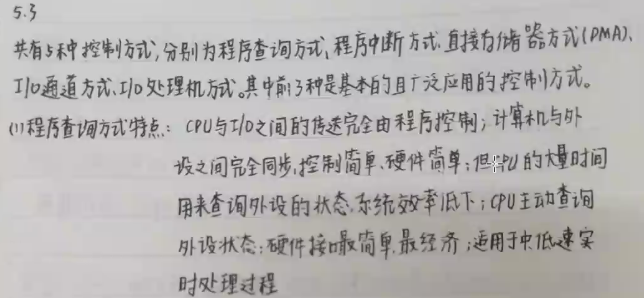 5.3
共有5种控制方式,分别为程序查询方式,程序中断方式.直接存储器方式(DMA)、
I/O通道方式、I/O处理机方式。其中前3种是基本的且广泛应用的控制方式。
(1)程序查询方式特点: CPU与I/O之间的传送完全由程序控制;计算机与外
设之间完全同步,控制简单、硬件简单;但CPU的大量时间
用来查询外设的状态,系统效率低下;CPU主动查询
外设状态;硬件接口最简单.最经济;适用于中低速实
时处理过程